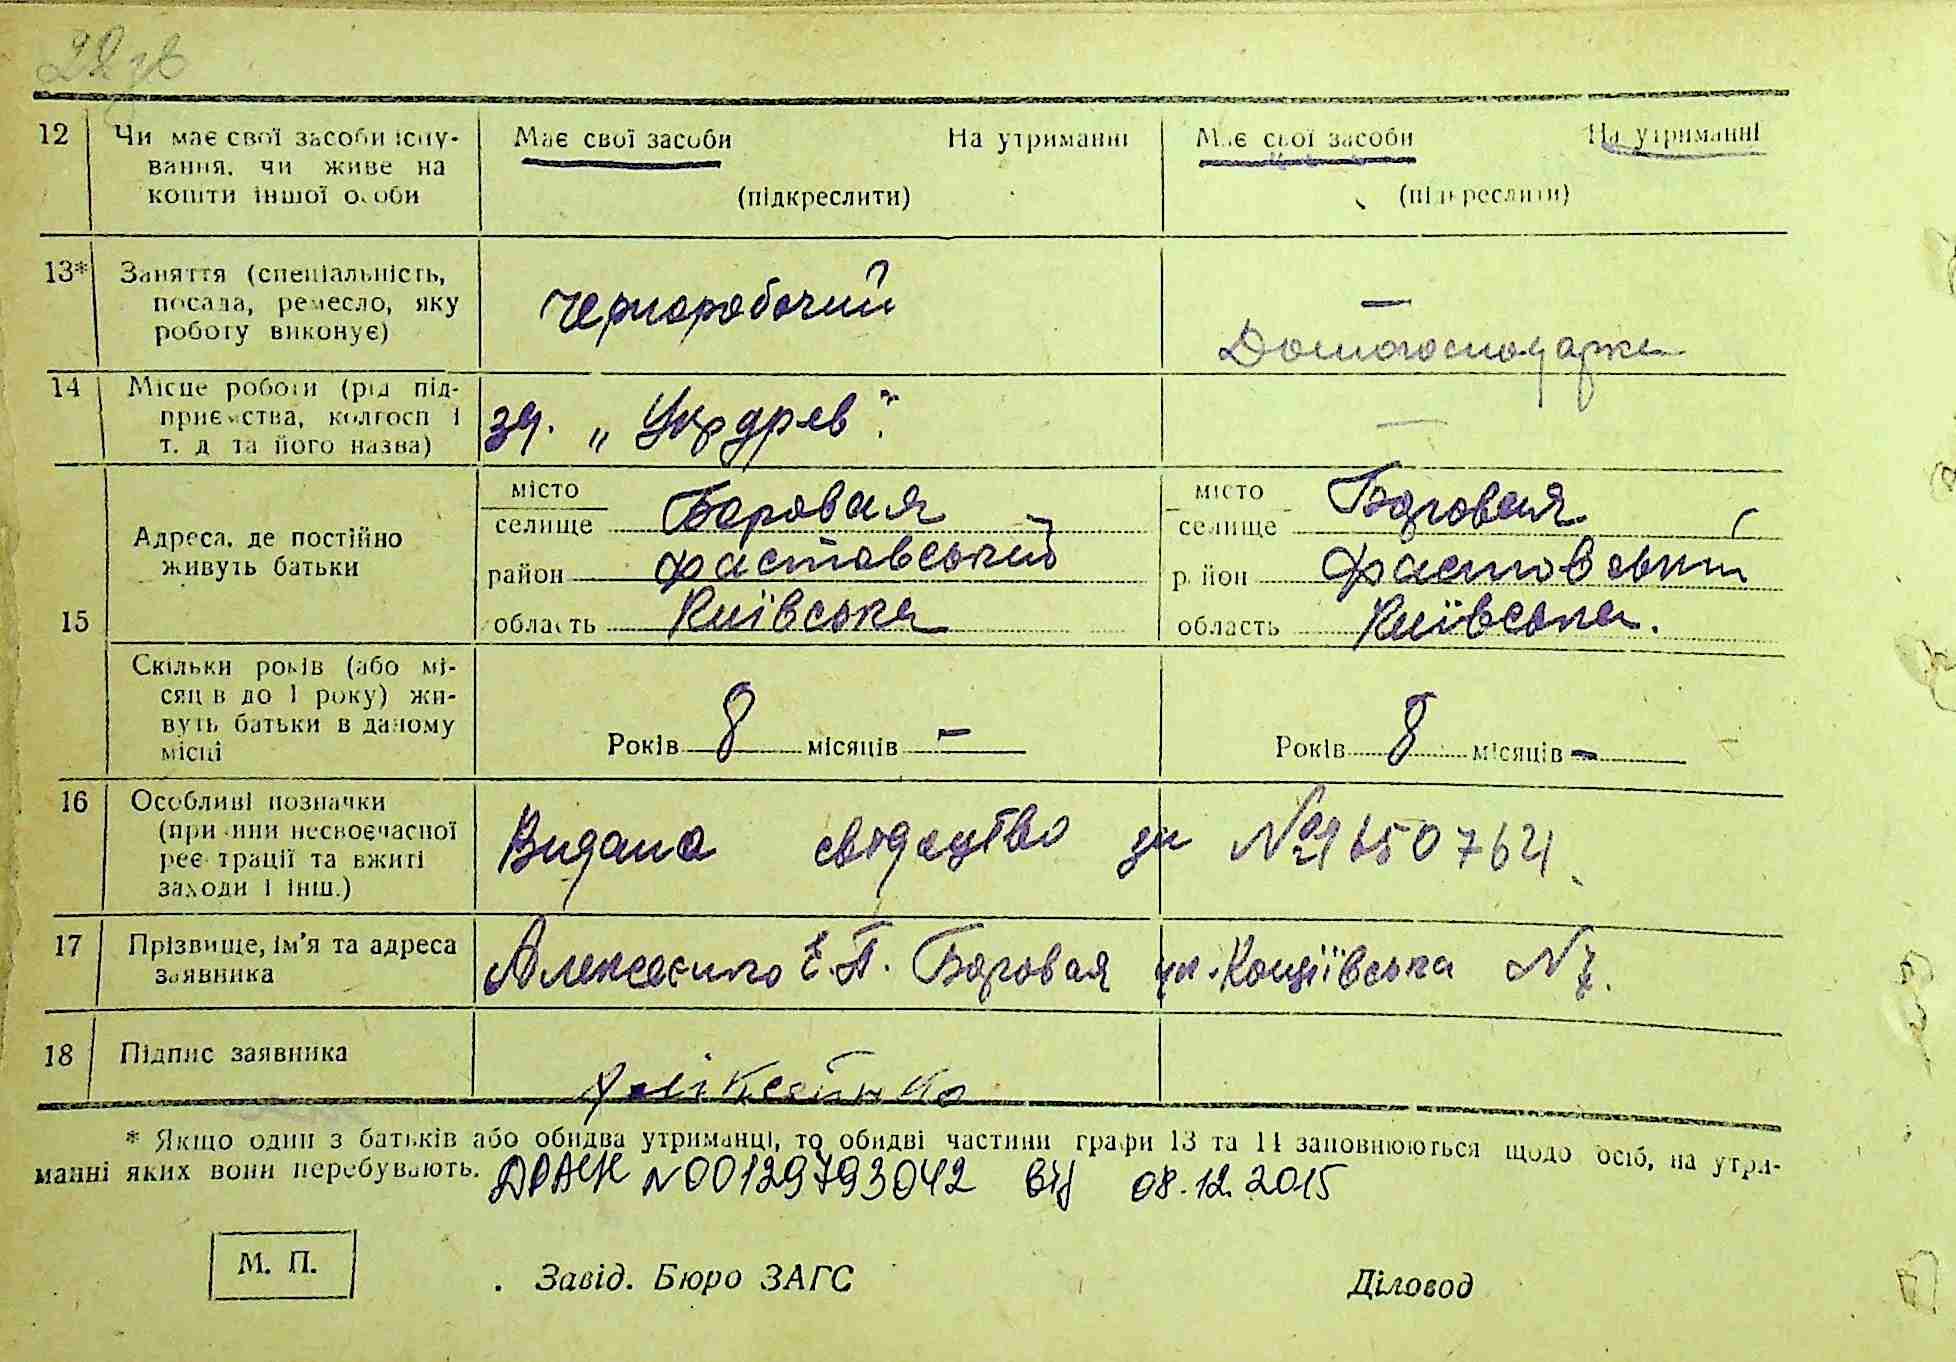 22 зв
12 Чи має свої засоби існу-
вання, чи живе на
кошти іншої особи
Має свої засоби На утриманні
(підкреслити)
Має свої засоби На утриманні
(підкреслити)
13* Заняття (спеціальність,
посада, ремесло, яку
роботу виконує)
Чернаробочий
—
Домогосподарка
14 Місце роботи (рід під-
приємства, колгосп і
т. д. та його назва)
зд. „Укрдрев".
—
15
Адреса, де постійно
живуть батьки
місто
селище Боровая
район Фастовський
область Київська
місто
селище Боровая
район Фастовський
область Київська.
Скільки років (або мі-
сяців до 1 року) жи-
вуть батьки в даному
місці
Років 8 місяців —
Років 8 місяців —
16 Особливі позначки
(причини несвоєчасної
реєстрації та вжиті
заходи і інш.)
Видано свідоцтво за №
17 Прізвище, ім'я та адреса
заявника
Алексеєнко Е.П. Боровая ул. N 7.
18 Підпис заявника
* Якщо один з батьків або обидва утриманці, то обидві частини графи 13 та 14 заповнюються щодо осіб, на утри-
манні яких вони перебувають.
ДРАЦС N00129793042 від 08.12.2015
М. П.
Завід. Бюро ЗАГС
Діловод